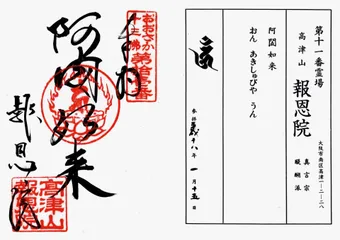 第十一番霊場
高津山 報恩院
真言宗
醍醐派
大阪市南区高津一-二-二八
阿閦如来
おん あきしゅびや うん
十八年 一月十五日
奉拝
おおさか
十三佛
阿閦如来
報恩院
高津山
報恩院